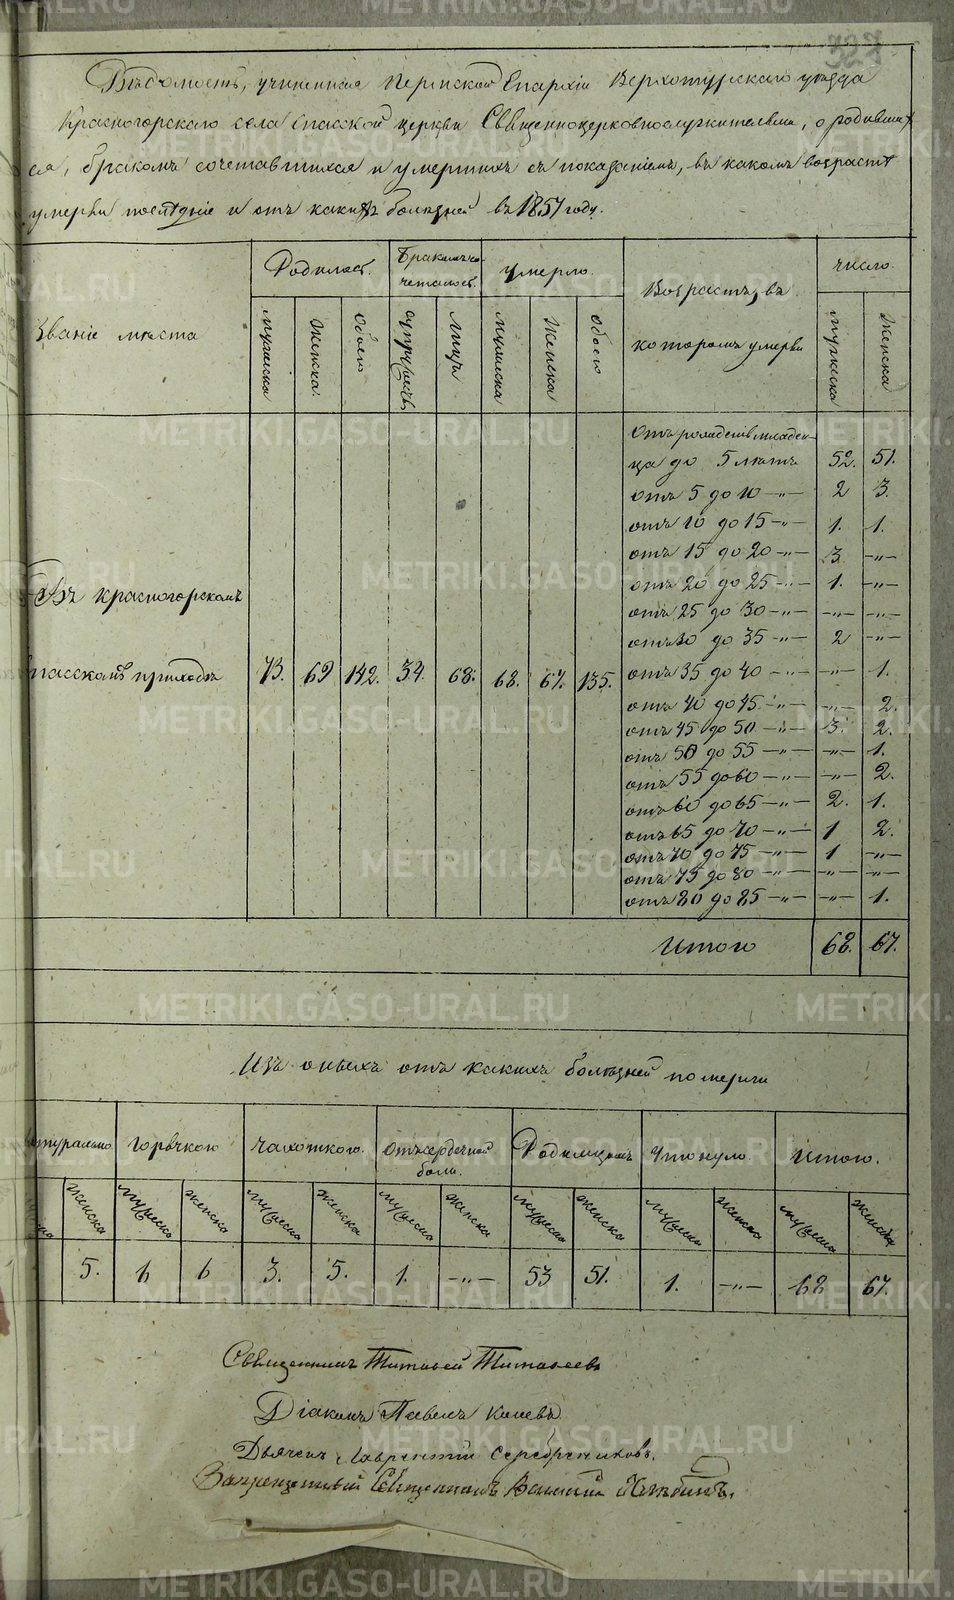 Вѣдомость, учиненная Пермской Епархіи Верхотурскаго уѣзда
Красногорскаго села Спасской церкви Священноцерковнослужителями, о родивших
ся, бракомъ сочетавшихся и умершихъ съ показаніемъ, въ какомъ возрастѣ
умерли послѣдніе и отъ какихъ болѣзней въ 1857 году.
Званіе мѣста
Родилось.
Бракомъ со
четалось.
умерло.
Возрастъ, въ
которомъ умерли
число
мужеска
женска.
обоего
супружествъ
лицъ
мужеска
женска
обоего
мужеска
женска
Отъ рожденія младен
ца до 5 лѣтъ 52. 51.
отъ 5 до 10 —„— 2 3.
отъ 10 до 15 —„— 1. 1.
отъ 15 до 20 —„— 3 —„—
отъ 20 до 25 —„— 1. —„—
отъ 25 до 30 —„— —„— —„—
отъ 30 до 35 —„— 2 —„—
отъ 35 до 40 —„— —„— 1.
отъ 40 до 45 —„— —„— 2.
отъ 45 до 50 —„— 3. 2.
отъ 50 до 55 —„— —„— 1.
отъ 55 до 60 —„— —„— 2.
отъ 60 до 65 —„— 2. 1.
отъ 65 до 70 —„— 1 2.
отъ 70 до 75 —„— 1 —„—
отъ 75 до 80 —„— —„— —„—
отъ 80 до 85 —„— —„— 1.
Въ красногорскомъ
спасскомъ приходѣ 73. 69 142. 34. 68. 68. 67. 135.
Итого 68. 67.
Изъ оныхъ отъ какихъ болѣзней померли
натурально
горячкою
чахоткою.
отъ сердечной
боли.
Родимцомъ
Утонуло.
Итого.
женска
мужеска
женска
мужеска
женска
мужеска
женска
мужеска
женска
мужеска
женска
мужеска
женска
5. 6 6 3. 5. 1. —„— 53 51. 1. —„— 68 67.
Священникъ
Діаконъ Павелъ
Дьячекъ Лаврентій Серебрениковъ.
Запрещенный Священникъ Василій
METRIKI.GASO-URAL.RU